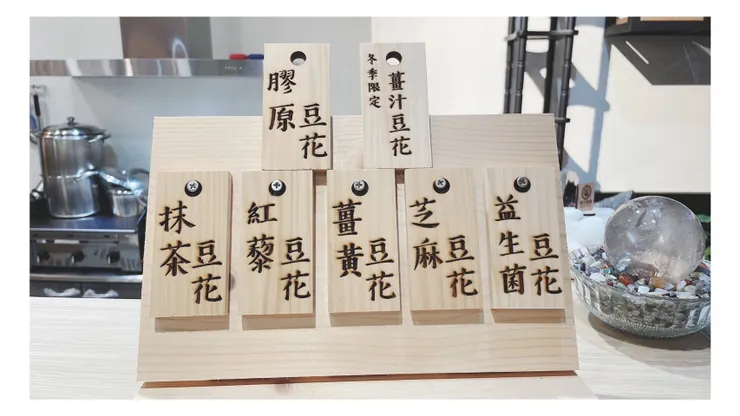 膠原豆花
冬季限定
薑汁豆花
抹茶豆花
紅藜豆花
薑黃豆花
芝麻豆花
益生菌豆花